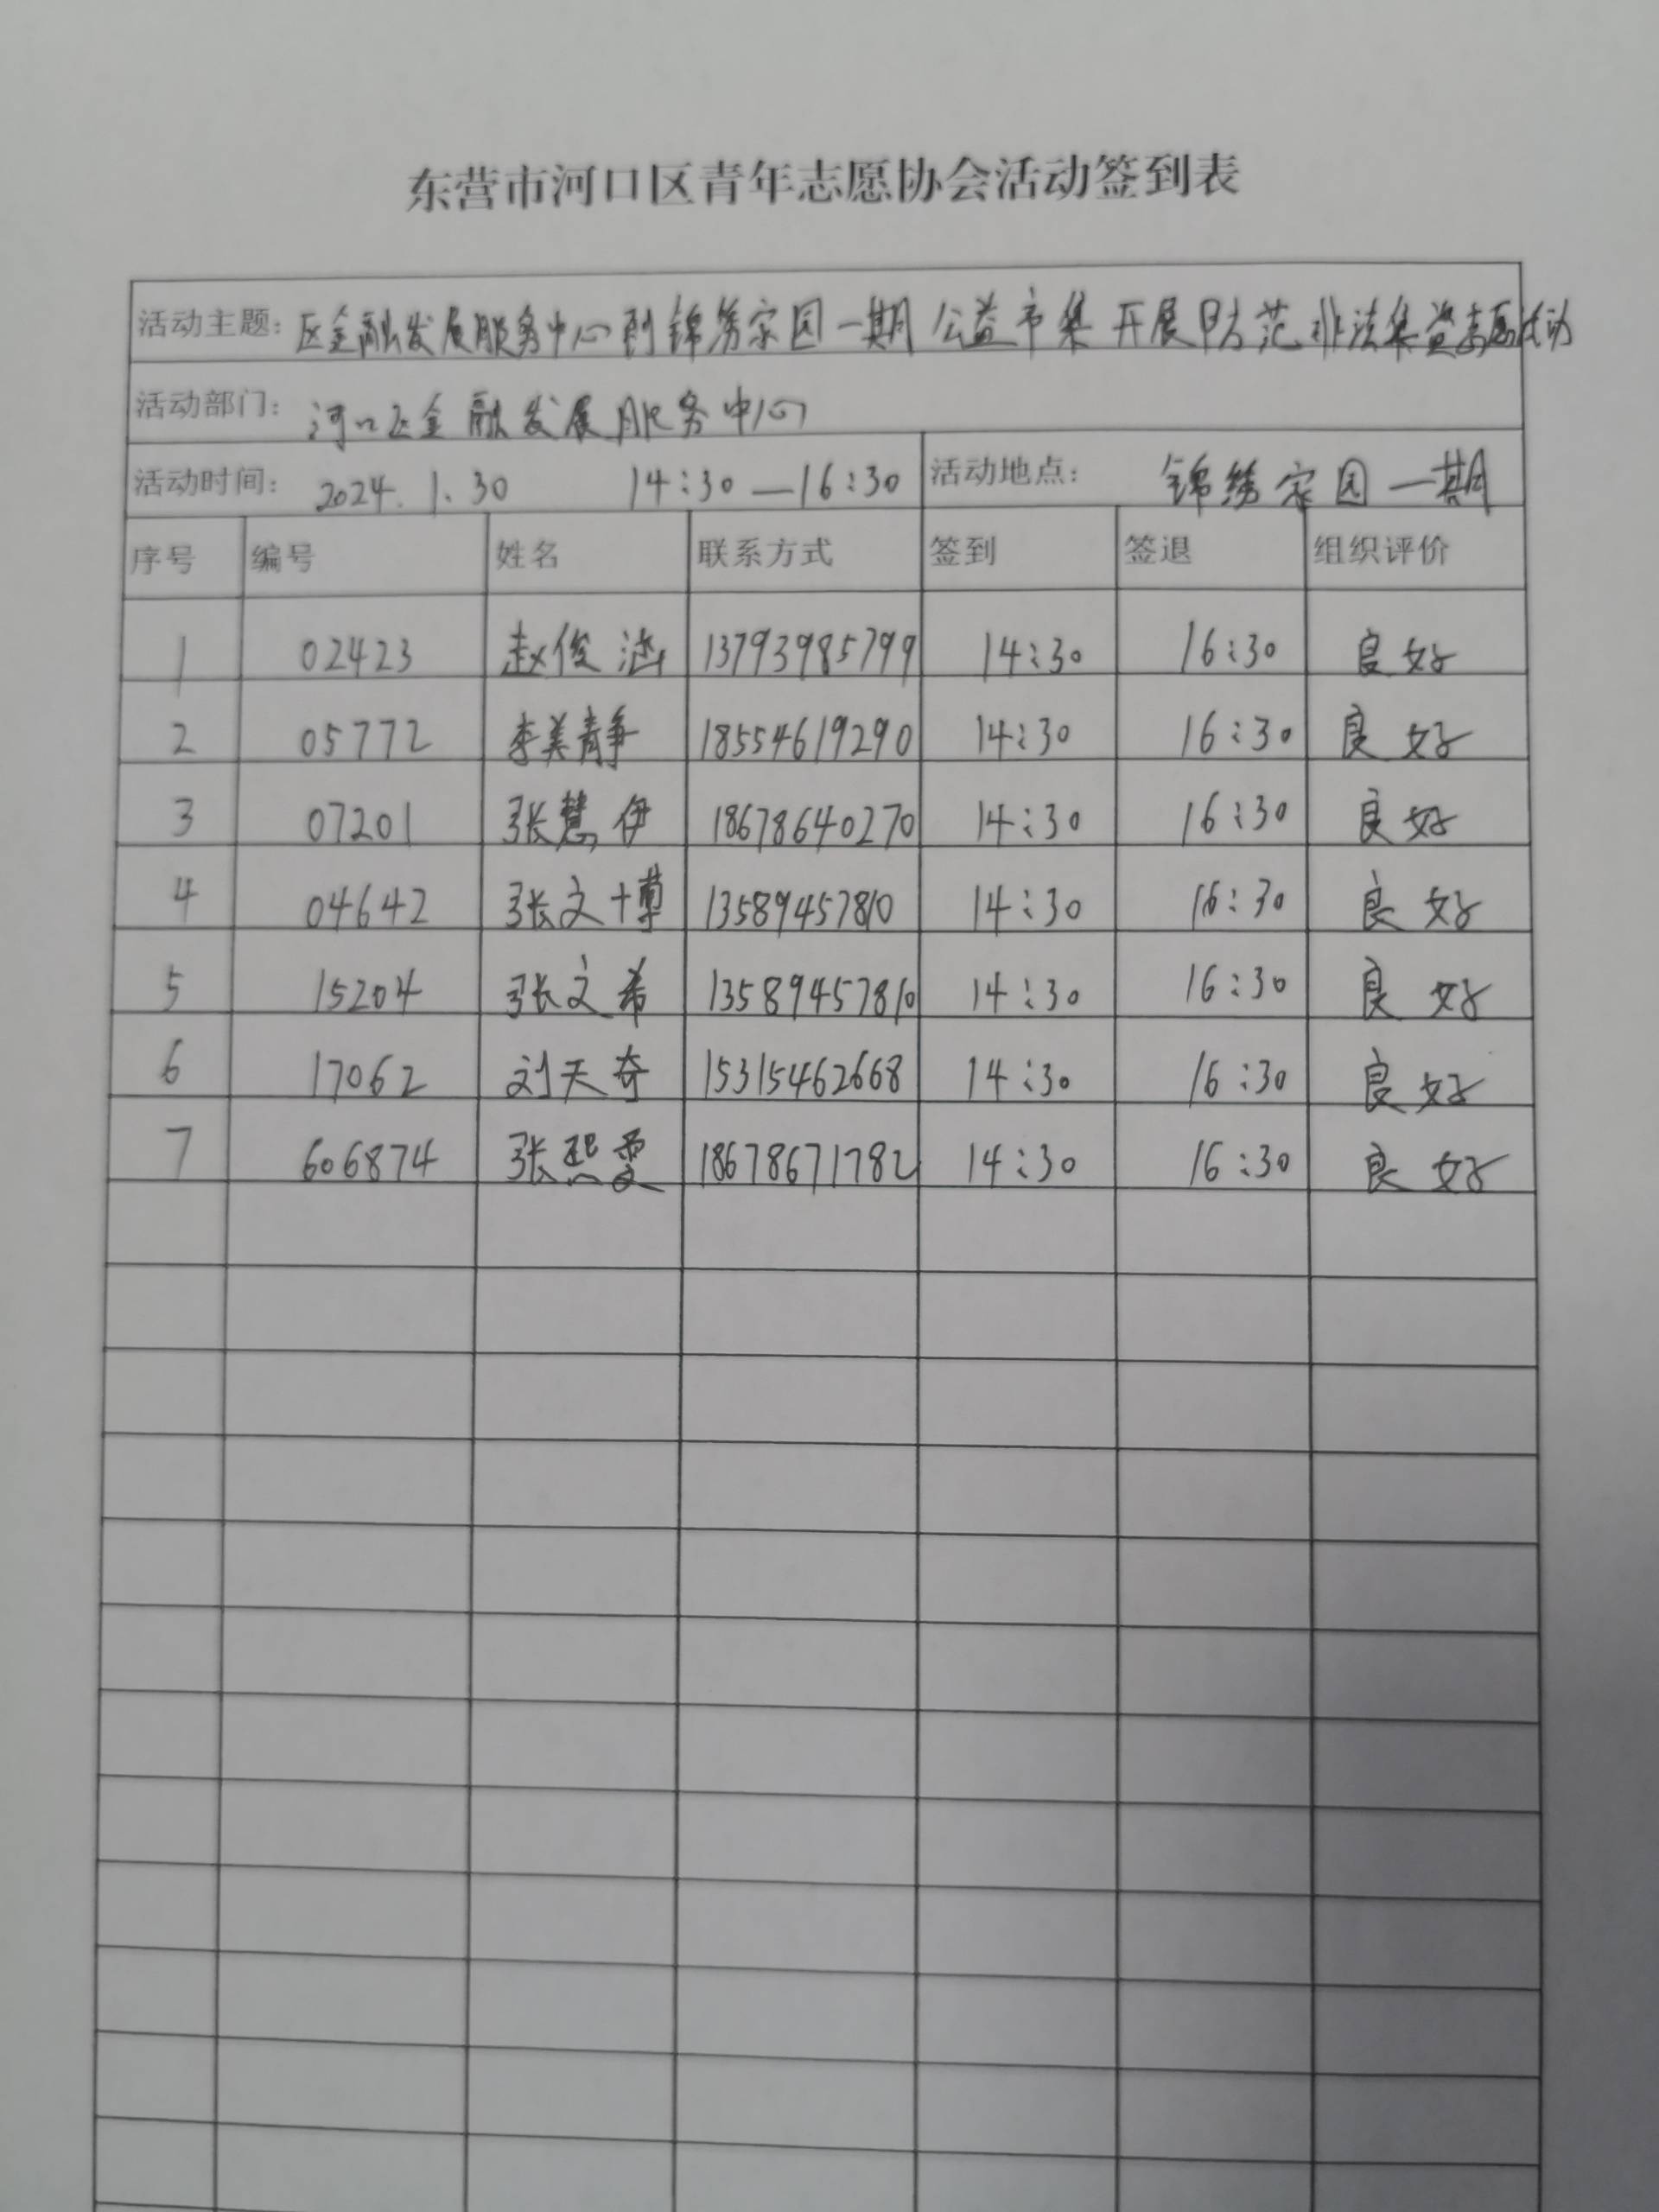 东营市河口区青年志愿协会活动签到表
活动主题：区金融发展服务中心到锦绣家园一期公益市集开展防范非法集资志愿活动
活动部门：河口区金融发展服务中心
活动时间：2024.1.30 14:30—16:30 活动地点：锦绣家园一期
序号 编号 姓名 联系方式 签到 签退 组织评价
1 02423 赵俊涵 13793985799 14:30 16:30 良好
2 05772 李美静 18554619290 14:30 16:30 良好
3 07201 张慧伊 18678640270 14:30 16:30 良好
4 04642 张文博 13589457810 14:30 16:30 良好
5 15204 张文希 13589457810 14:30 16:30 良好
6 17062 刘天奇 15315462668 14:30 16:30 良好
7 606874 张熙雯 18678671782 14:30 16:30 良好